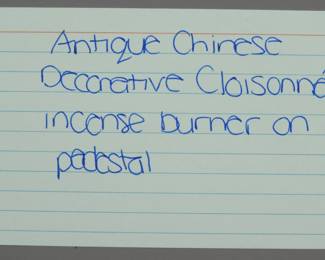 Antique Chinese
Decorative Cloisonné
incense burner on
pedestal